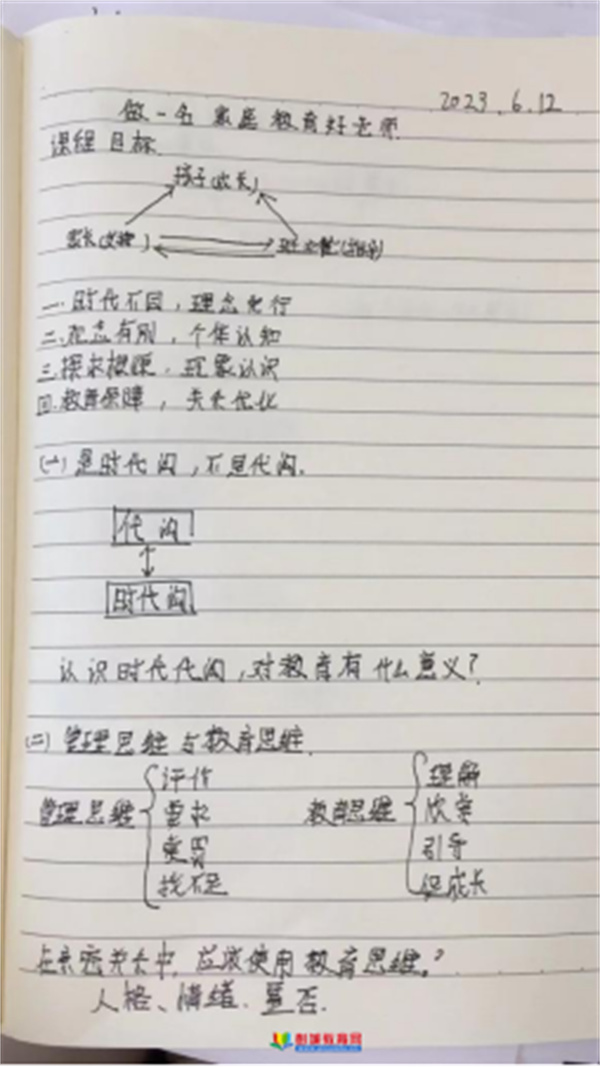 2023.6.12
做一名家庭教育好老师
课程目标
孩子(成长)
家长( ) 班主任( )
一.时代不同,理念先行
二.观念有别,个体认知
三.探求根源,现象认识
四.教育保障,关系优化
(一)是时代沟,不是代沟.
代沟
时代沟
认识时代代沟,对教育有什么意义?
(二)管理思维与教育思维.
管理思维 教育思维
评价 理解
要求 欣赏
奖罚 引导
找不足 促成长
在亲密关系中,应该使用教育思维。?
人格、情绪.
彭城教育网